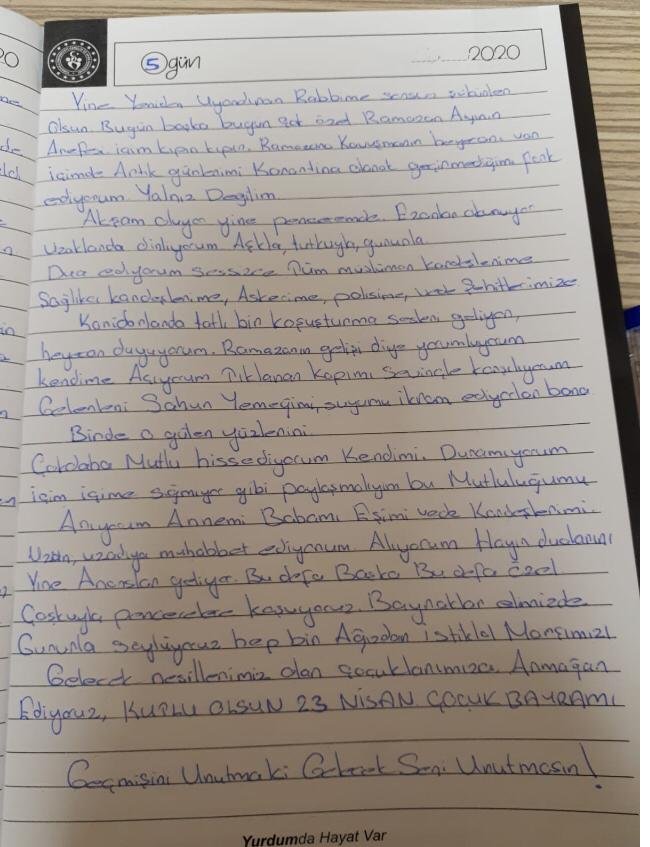 5 gün
2020
Yine Yeniden Uyandıran Rabbime sonsuz şükürler
Olsun. Bugün başka bugün çok özel Ramazan Ayının
Arefesi içim kıpır kıpır. Ramazana Kavuşmanın heyecanı var
içimde Artık günlerimi Karantina olarak geçirmediğimi fark
ediyorum Yalnız Değilim.
Akşam oluyor yine penceremde. Ezanlar okunuyor
Uzaklarda dinliyorum Aşkla, tutkuyla, gururla.
Dua ediyorum sessizce Tüm müslüman kardeşlerime
Sağlıkcı kardeşlerime, Askerime, polisime, Şehitlerimize
Koridorlarda tatlı bir koşuşturma sesleri geliyor,
heycan duyuyorum. Ramazanın gelişi diye yorumluyorum
kendime Açıyorum Tıklanan Kapımı Sevinçle karşılıyorum
Gelenleri Sahur Yemeğimi, suyumu ikram ediyorlar bana
Birde o gülen yüzlerini.
Çokdaha Mutlu hissediyorum Kendimi. Duramıyorum
içim içime sığmıyor gibi paylaşmalıyım bu Mutluluğumu
Arıyorum Annemi Babamı Eşimi vede Kardeşlerimi.
Uzun, uzadıya muhabbet ediyorum. Alıyorum Hayır dualarını
Yine Anonslar geliyor. Bu defa Başka Bu defa Özel
Coşkuyla pencerelere koşuyoruz. Bayraklar elimizde
Gururla söylüyoruz hep bir Ağızdan istiklal Marşımızı
Gelecek nesillerimiz olan çocuklarımıza Armağan
Ediyoruz, KUTLU OLSUN 23 NİSAN ÇOCUK BAYRAMI
Geçmişini Unutmaki Gelecek Seni Unutmasın!
Yurdumda Hayat Var